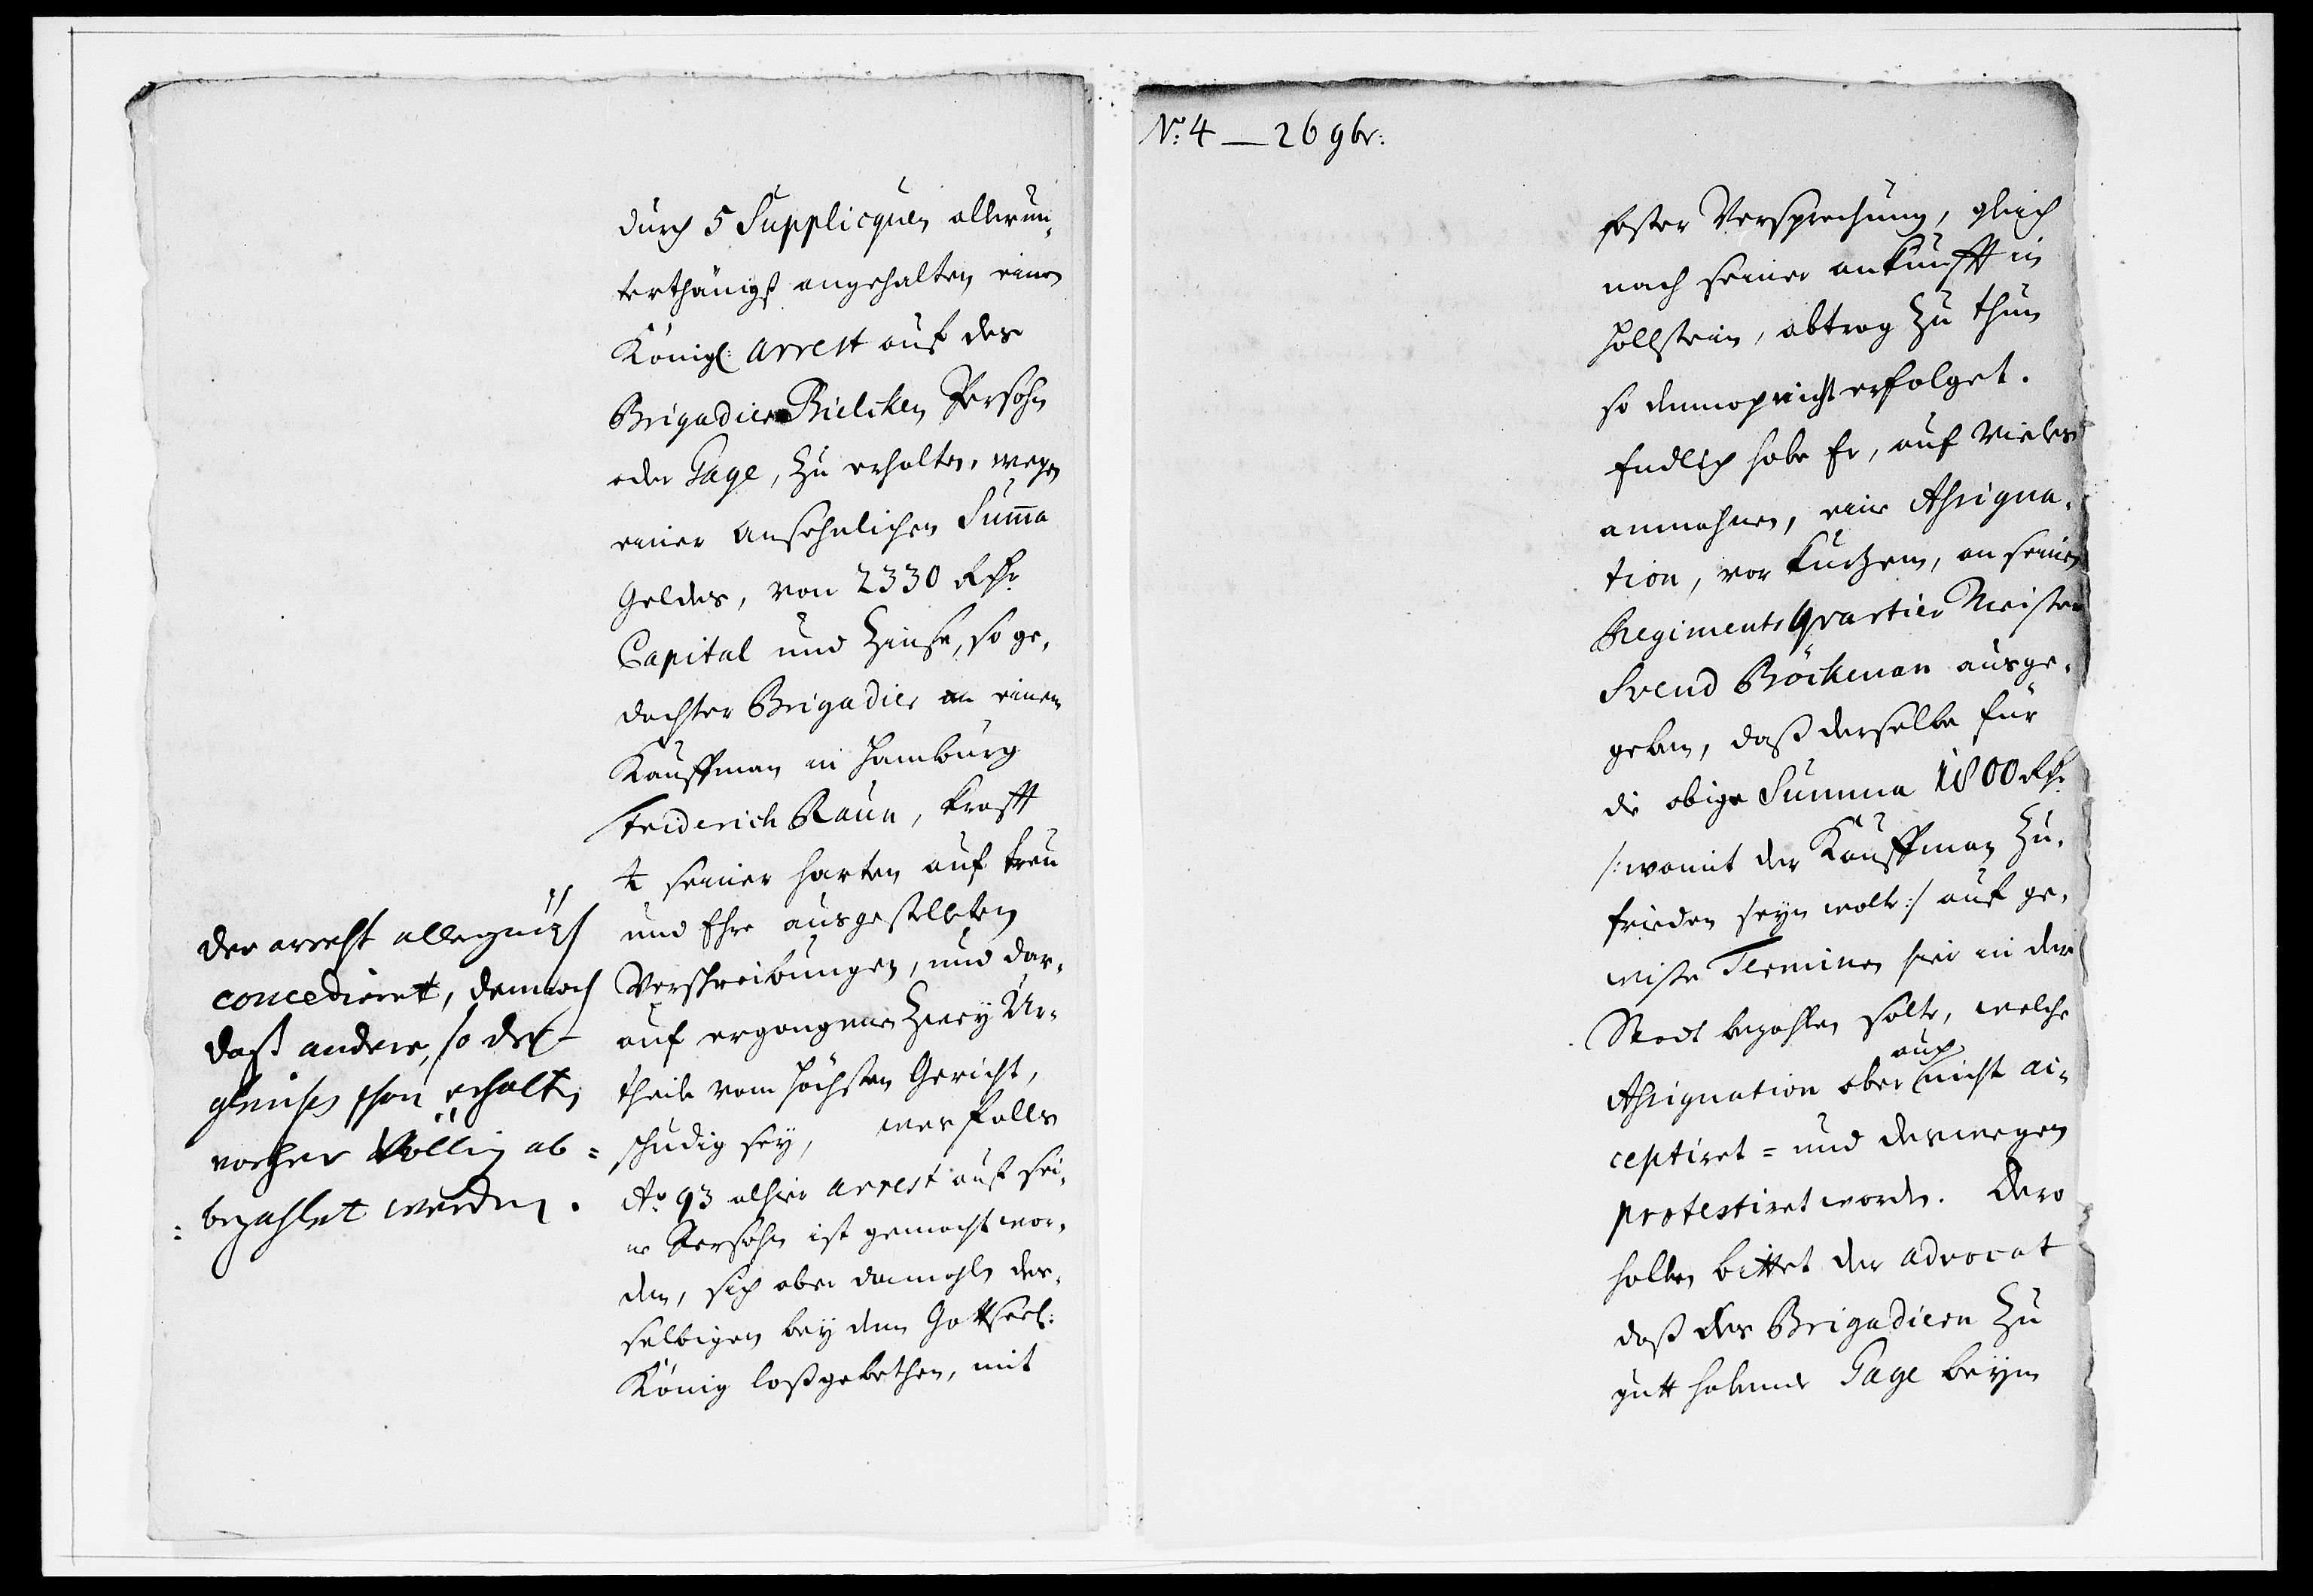 durch 5 Supplicquen allerun¬
terthänigst angehalten einen
Königl: Arrest auf des
Brigadier Bielcken Persohn
oder Gage, zu erhalten, wegen
einer Ansehnlichen Sum̄a
Geldes, von 2330 Rthr
Capital und Zinse, so ge¬
dachter Brigadier an einem
Kauffman in Hamburg
Friderich Baun, krafft
seiner harten auf treu
und Ehre ausgestelleten
Verschreibungen, und dar¬
auf ergangene Zwey Ur¬
theile vom Höchsten Gericht,
schudig sey, wesfalls
Ao. 93 alhier Arrest auf sei¬
ne Persohn ist gemacht wor¬
den, sich aber damahls des¬
selbigen bey dem Gottseel:
König loßgebethen, mit
der arrest allergnägst
concedieret, dennoch
daß andere, so deß¬
gleichen schon erhalten
vorher Völlig ab=
=bezahlet werden.
No: 4 — 26 9br:
fester Versprechung, gleich
nach seiner ankunfft in
Hollstein, abtrag zu thun
so dennoch nicht erfolget.
Endlich habe Er, auf Vieles
anmahnen, eine Assigna¬
tion, vor kurzem, an seinen
Regiments Qvartier Meister
Svend Böckman ausge¬
geben, daß derselbe für
die obige Summa 1800 Rthr
/: womit der Kauffman zu¬
frieden seyn wolte :/ auf ge¬
wisse Terminen hier in der
Stadt bezahlen solte, welche
Assignation aber auch nicht ac¬
ceptiret = und deswegen
protestiret worden. Dero
halben bittet der Advocat
daß des Brigadiern zu
gutt habende Gage beym